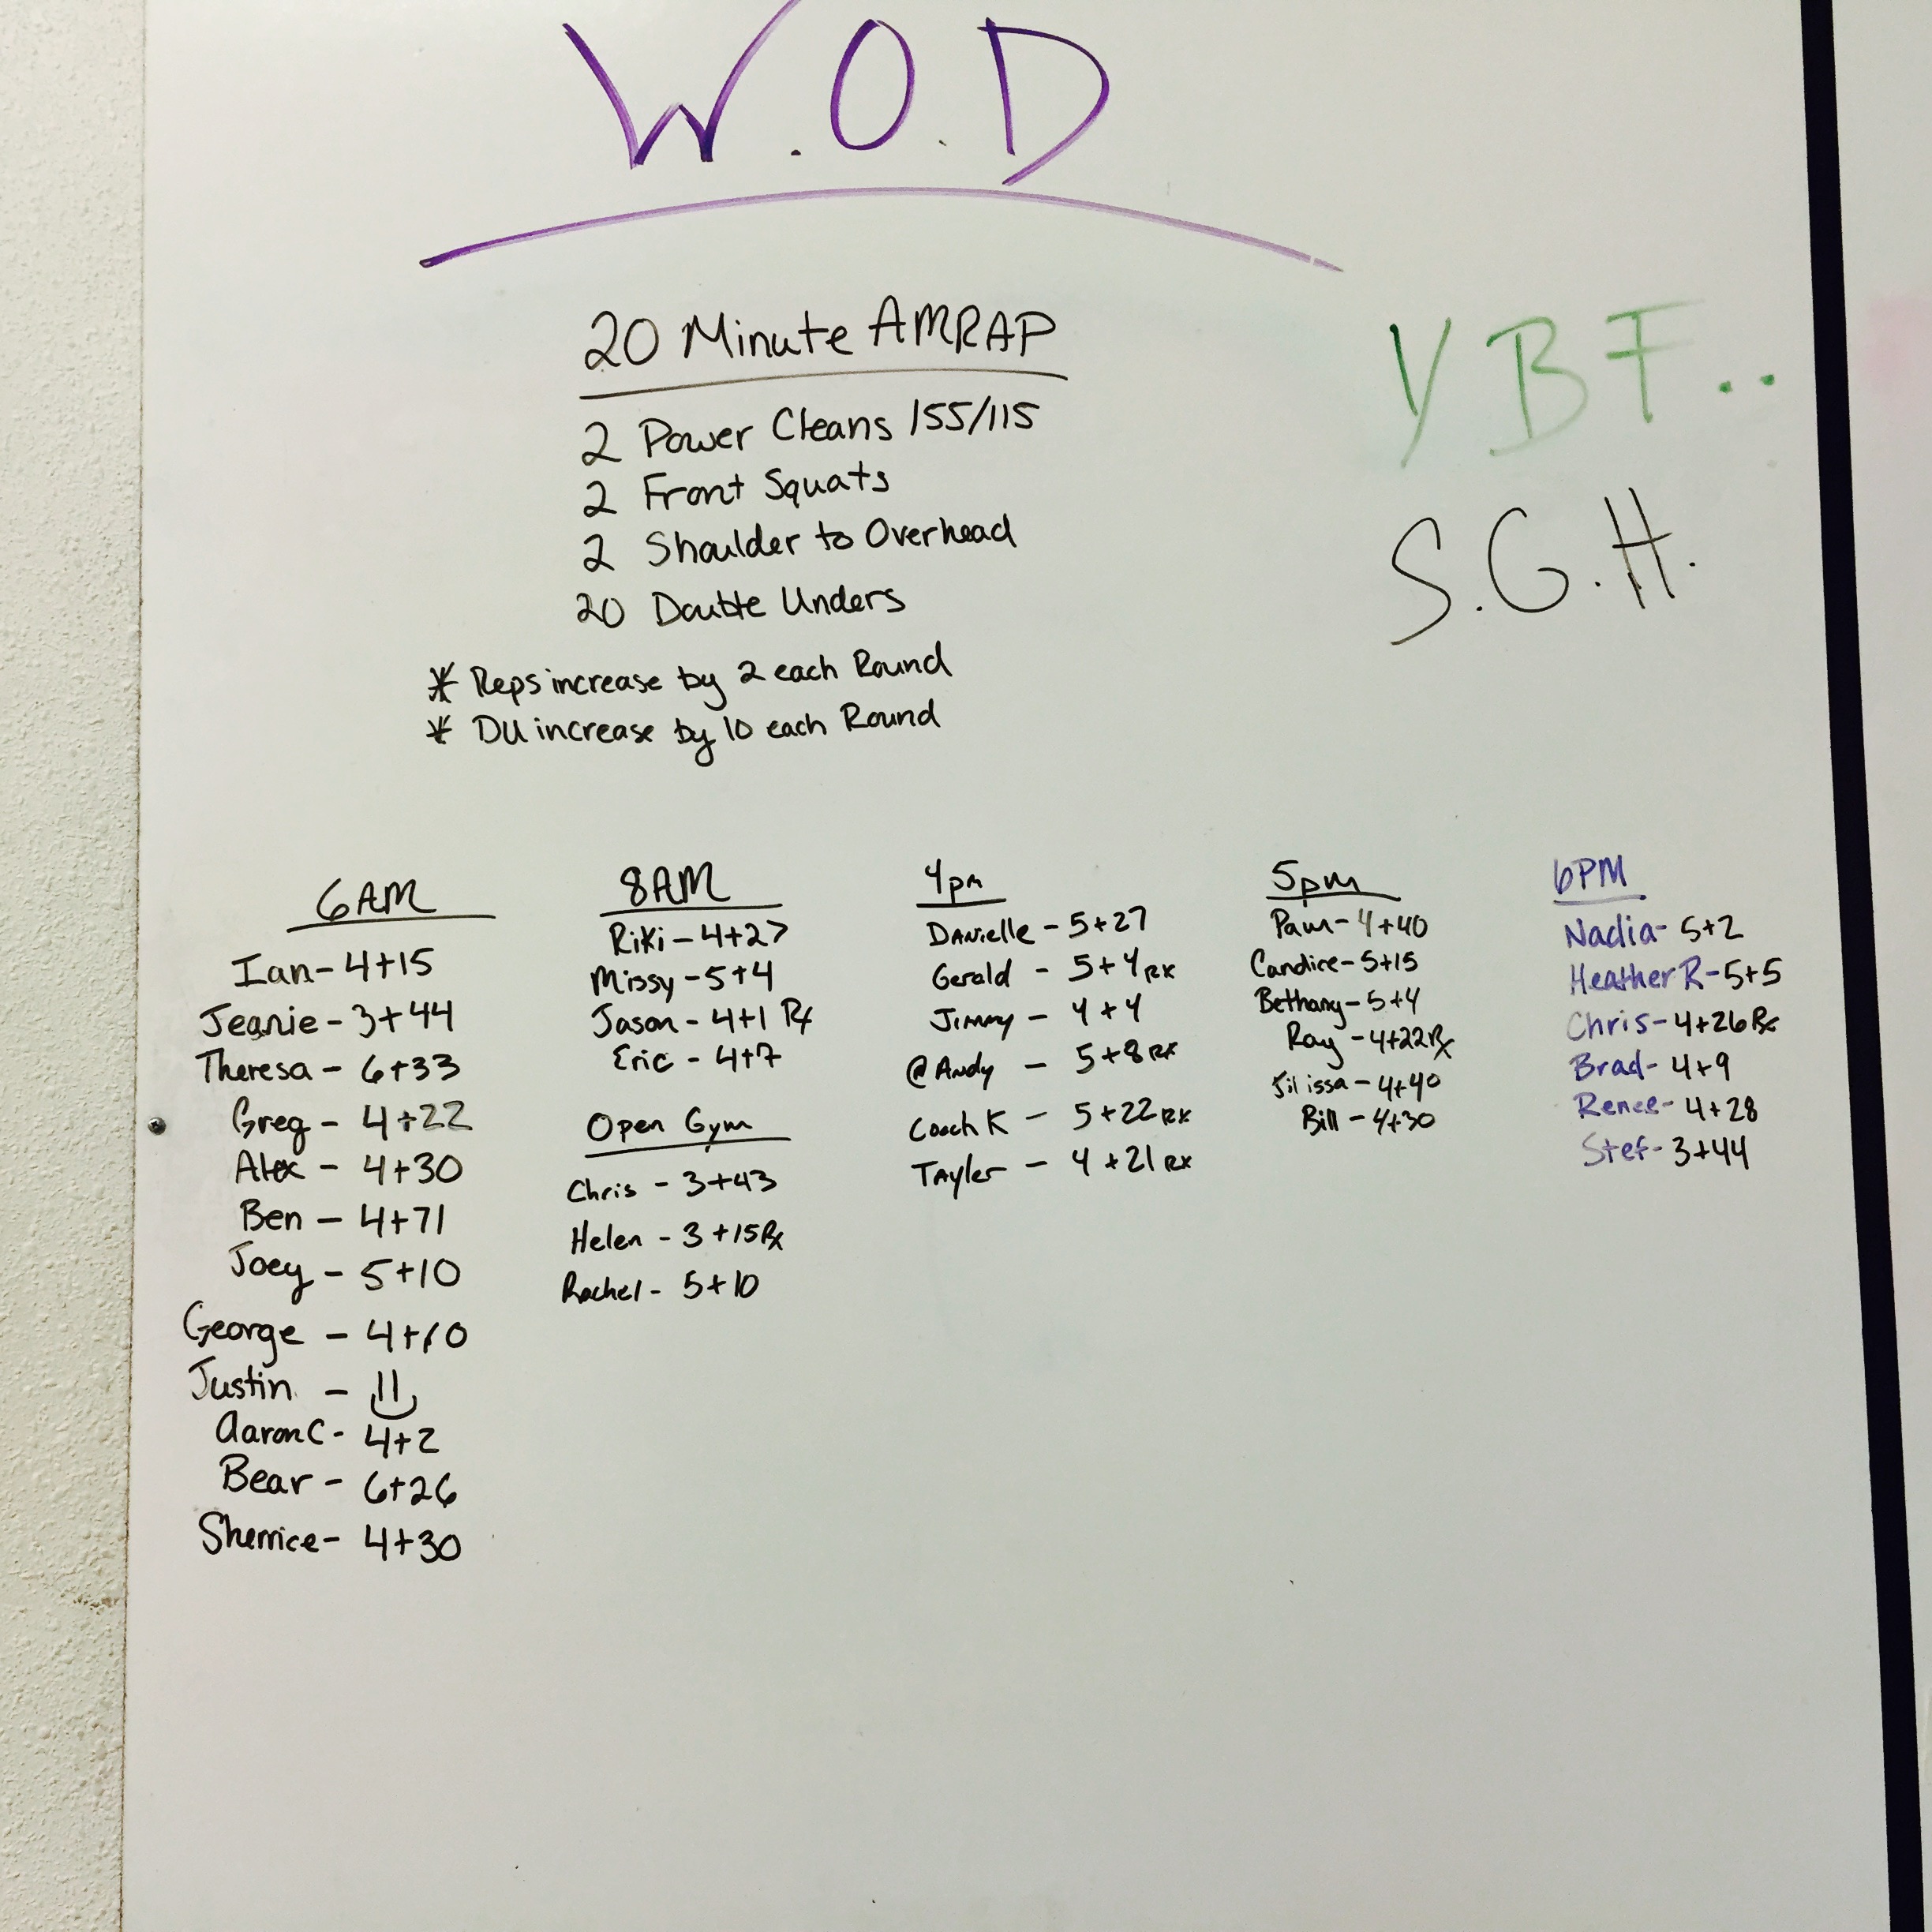 W.O.D
20 Minute AMRAP
2 Power Cleans 155/115
2 Front Squats
2 Shoulder to Overhead
20 Double Unders
* Reps increase by 2 each Round
* DU increase by 10 each Round
YBF..
S.G.H.
6AM
Ian - 4+15
Jeanie - 3+44
Theresa - 6+33
Greg - 4+22
Alex - 4+30
Ben - 4+71
Joey - 5+10
George - 4+10
Justin -
Aaron C - 4+2
Bear - 6+26
Sherrice - 4+30
8AM
Riki - 4+27
Missy - 5+4
Jason - 4+1 Rx
Eric - 4+7
Open Gym
Chris - 3+43
Helen - 3+15 Rx
Rachel - 5+10
4pm
Danielle - 5+27
Gerald - 5+4 RX
Jimmy - 4+4
@Andy - 5+8 RX
Coach K - 5+22 RX
Tayler - 4+21 RX
5pm
Pam - 4+40
Candice - 5+15
Bethany - 5+4
Ray - 4+22 Rx
Jilissa - 4+40
Bill - 4+30
6PM
Nadia - 5+2
Heather R - 5+5
Chris - 4+26 Rx
Brad - 4+9
Renee - 4+28
Stef - 3+44